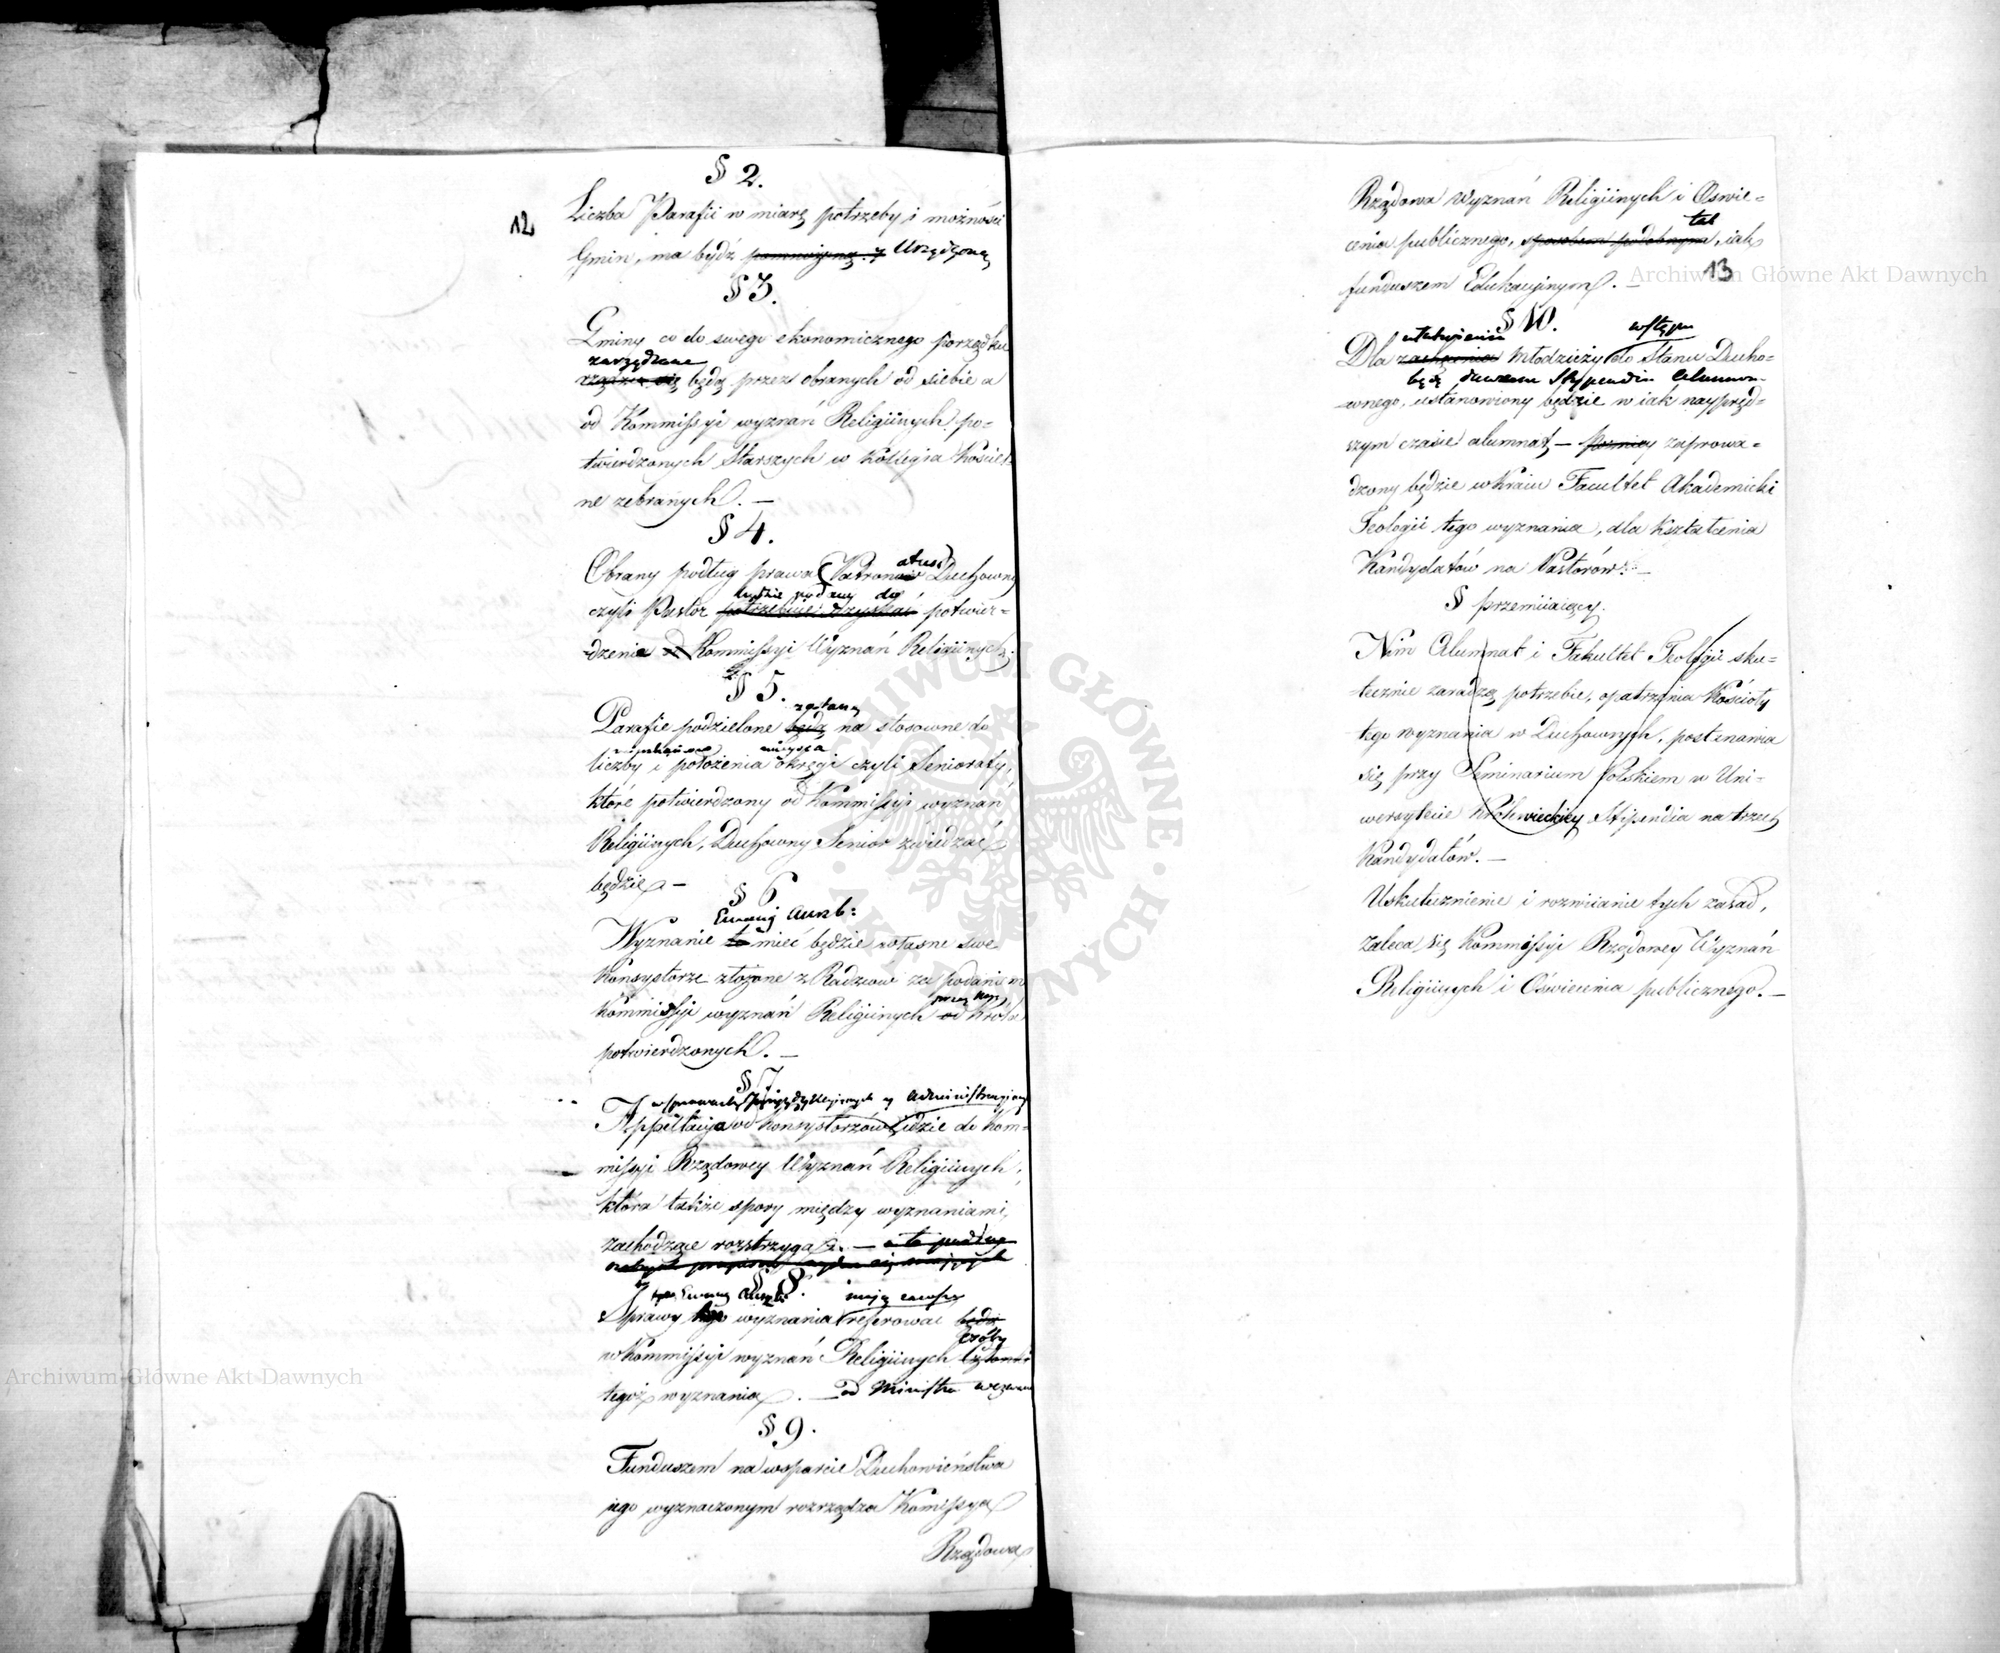 12
§ 2.
Liczba Parafii w miarę potrzeby i możności
Gmin, ma bydź pomnożoną. Urządzoną
§ 3.
Gminy co do swego ekonomicznego porządku
zarządzane
rządzić się będą przez obranych od siebie a
od Kommissyi wyznań Religiinych po-
twierdzonych Starszych w Kollegia Kościel-
ne zebranych. —
§ 4.
atus
Obrany podług prawa Patronów Duchowny
będzie podany do
czyli Pastor potrzebuie uzyskać potwier-
dzenia od Kommissyi Wyznań Religiinych.
§ 5.
zostaną
Parafie podzielone będą na stosowne do
mieysca
liczby i położenia okręgi czyli Senioraty,
które potwierdzony od Kommissyi wyznań
Religiinych, Duchowny Senior zwiedzać
będzie —
§ 6
Ewang Auszb:
Wyznanie to mieć będzie własne swe
Konsystorze złożone z Radzców za podaniem
przez
Kommissyi wyznań Religiinych od Króla
potwierdzonych. —
§ 7
w sprawach Religiinych y administracyiny
Appellacya od Konsystorzów idzie do Kom-
missyi Rządowey Wyznań Religiinych,
która także spory między wyznaniami,
zachodzące rozstrzyga. — a to podług
§ 8.
Ewang Auszb maią zawsze
Sprawy tego wyznania referować będą
osoby
w Kommissyi wyznań Religiinych Członki
tegoż wyznania. — od Ministra wezwane
§ 9.
Funduszem na wsparcie Duchowieństwa
iego wyznaczonym rozrządza Komissya
Rządowa
Rządowa Wyznań Religiinych i Oswie-
tak
cenia publicznego, sposobem podobnym, iak
13
funduszem Edukacyinym. —
§ 10.
ułatwienia wstępu
Dla zachęcenia Młodzieży do Stanu Ducho-
będą dawane Stypendia Alumnom
wnego, ustanowiony będzie w iak naypręd-
szym czasie alumnat, — pozniey zaprowa-
dzony będzie w Kraiu Facultet Akademicki
Teologii tego wyznania, dla kształcenia
Kandydatów na Pastorów. —
§ przemiiaiący.
Nim Alumnat i Fakultet Teologii sku-
tecznie zaradzą potrzebie, opatrzenia Kościoły
tego wyznania w Duchownych, postanawia
się przy Seminarium Polskiem w Uni-
wersytecie Królewieckiey Stipendia na trzech
Kandydatów. —
Uskutecznienie i rozwiianie tych zasad,
zaleca się Kommissyi Rządowey Wyznań
Religiinych i Oświecenia publicznego. —
Archiwum Główne Akt Dawnych
Archiwum Główne Akt Dawnych